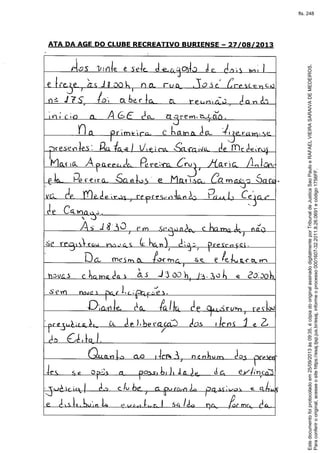 fls. 248
ATA DA AGE DO CLUBE RECREATIVO BURIENSE – 27/08/2013
Aos vinte e sete de agosto de dois mil
e treze, às 18:00h, na rua José Crescenso
nº 175, foi aberta a reunião, dando
início a AGE da agremiação.
Na primeira chamada fizeram-se
presentes: Rafael Vieira Saraiva de Medeiros,
Maria Aparecida Pereira Cruz, Maria Anton-
ela Pereira Santos e Marisa Camargo Sarai-
va de Medeiros, representando Paulo Cezar
de Camargo.
As 18:30, em segunda chamada, não
se registrou novas (chan), digo, presenças.
Da mesma forma, se efetuaram
novas chamadas às 19:00h, 19:30h e 20:00h,
sem novas participações.
Diante da falta de quórum, restou
prejudicada a deliberação dos itens 1 e 2
do Edital.
Quanto ao item 3, nenhum dos presen
tes se opôs a possibilidade da extinção
judicial do clube, apurando passivos e ativos
e distribuindo eventual saldo na forma da
Este documento foi protocolado em 25/09/2013 às 09:35, é cópia do original assinado digitalmente por Tribunal de Justica Sao Paulo e RAFAEL VIEIRA SARAIVA DE MEDEIROS.
Para conferir o original, acesse o site https://esaj.tjsp.jus.br/esaj, informe o processo